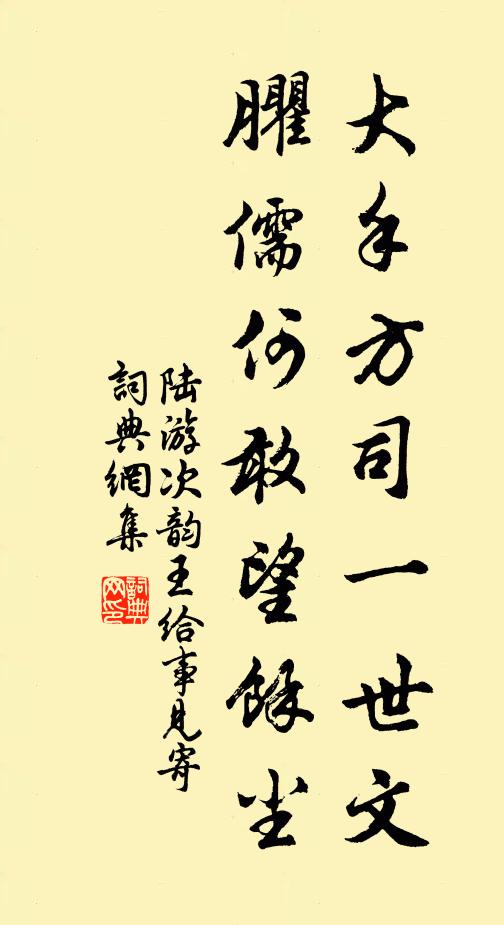 大手方司一世文
臞儒何敢望餘尘
陸游次韵王給事見寄
詞典網集
詞典网印